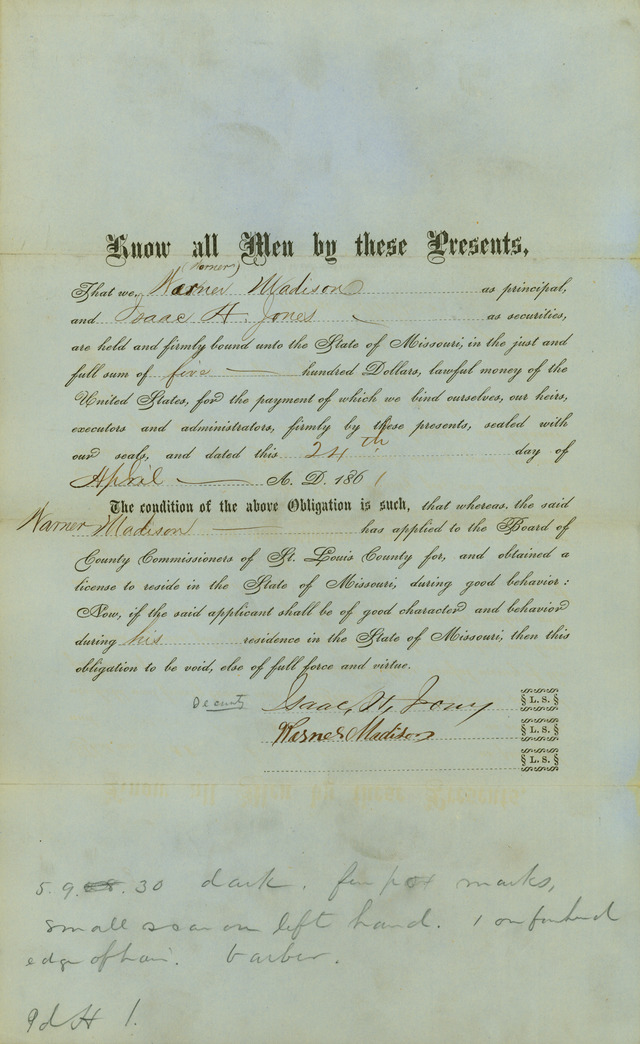 Know all Men by these Presents,
(Warner)
That we, Warner Madison as principal,
and Isaac H. Jones as securities,
are held and firmly bound unto the State of Missouri, in the just and
full sum of five hundred Dollars, lawful money of the
United States, for the payment of which we bind ourselves, our heirs,
executors and administrators, firmly by these presents, sealed with
our seals, and dated this 24th day of
April A. D. 1861
The condition of the above Obligation is such, that whereas, the said
Warner Madison has applied to the Board of
County Commissioners of St. Louis County for, and obtained a
license to reside in the State of Missouri, during good behavior:
Now, if the said applicant shall be of good character and behavior
during his residence in the State of Missouri, then this
obligation to be void, else of full force and virtue.
Isaac H. Jones § L. S. §
Warner Madison § L. S. §
§ L. S. §
5.9. 30 dark. few pox marks,
small scar on left hand. 1 on forehead
edge of hair. barber.